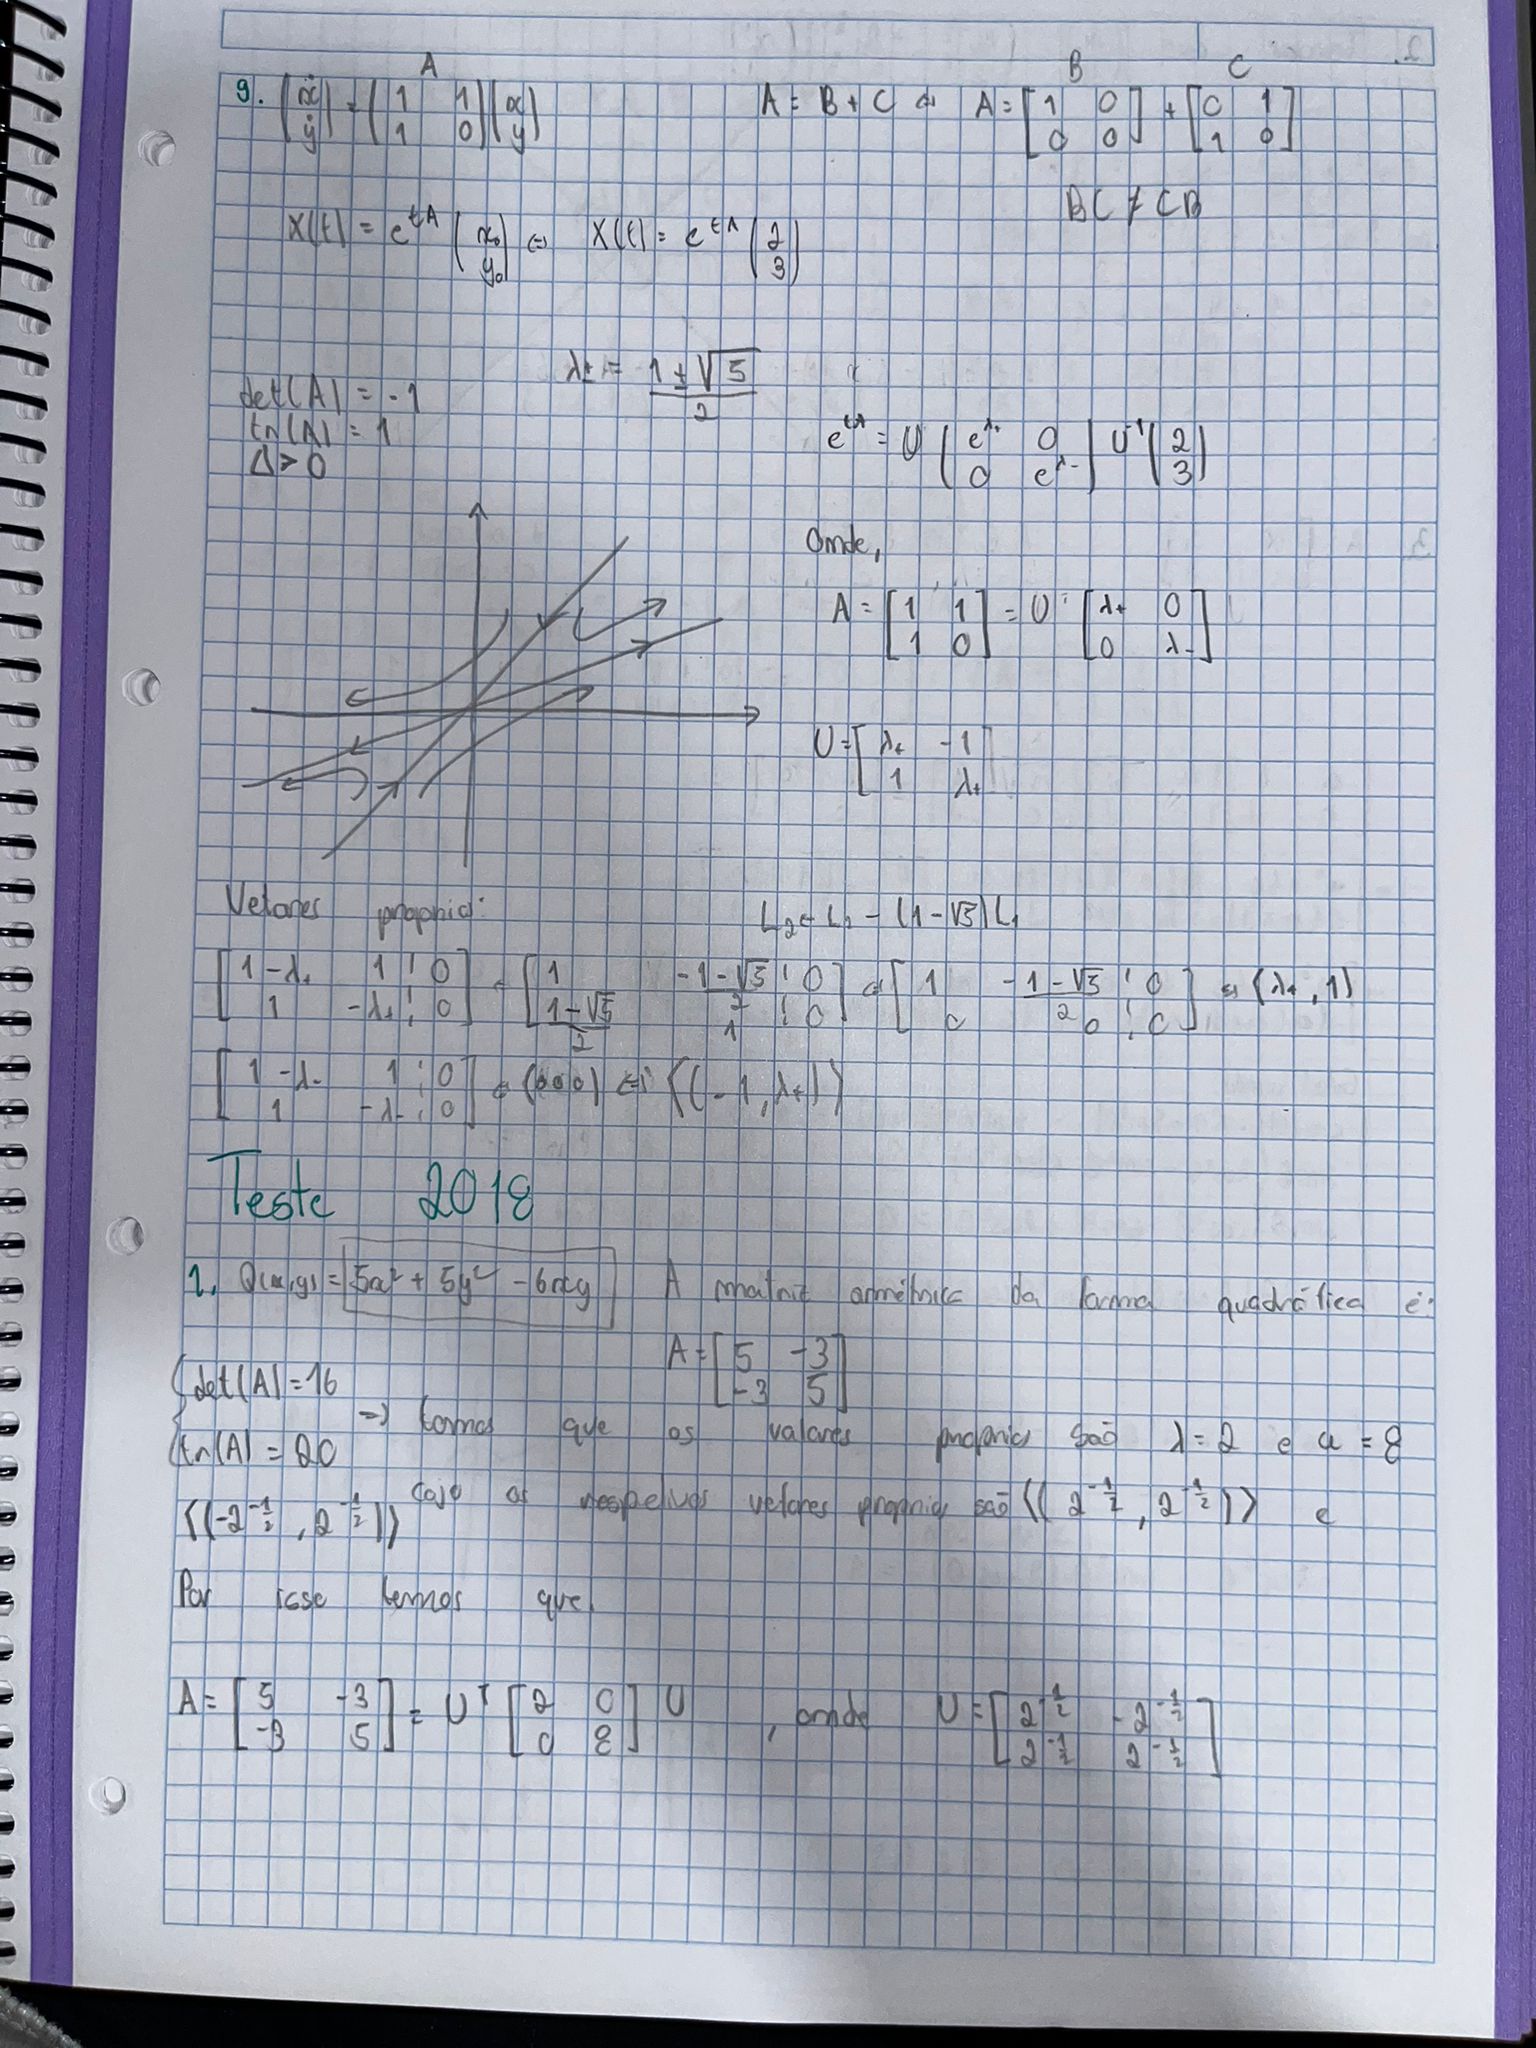 A
B C
9. (ẋ ẏ) = (1 1; 1 0)(x y) A = B + C ⇔ A = [1 0; 0 0] + [0 1; 1 0]
BC ≠ CB
X(t) = e^{tA} (x₀ y₀) ⇔ X(t) = e^{tA} (2 3)
λ± = (1 ± √5)/2
det(A) = -1
tr(A) = 1
Δ > 0
e^{tA} = U (e^{λ+} 0; 0 e^{λ-}) U⁻¹ (2 3)
Onde,
A = [1 1; 1 0] = U [λ+ 0; 0 λ-]
U = [λ+ -1; 1 λ+]
Vetores proprios:
L₂ ← L₂ - (1-√5)L₁
[1-λ+ 1 | 0; 1 -λ+ | 0] ⇔ [1 (-1-√5)/2 | 0; (1-√5)/2 1 | 0] ⇔ [1 (-1-√5)/2 | 0; 0 0 | 0] ⇔ (λ+, 1)
[1-λ- 1 | 0; 1 -λ- | 0] ⇔ (ooo) ⇔ ⟨(-1, λ+)⟩
Teste 2018
1. Q(x,y) = 5x² + 5y² - 6xy A matriz simétrica da forma quadrática é:
A = [5 -3; -3 5]
{det(A) = 16
{tr(A) = 20
⇒ temos que os valores proprios são λ = 2 e u = 8
cujo os respetivos vetores proprios são ⟨(2^{-1/2}, 2^{-1/2})⟩ e
⟨(-2^{-1/2}, 2^{-1/2})⟩
Por isso temos que,
A = [5 -3; -3 5] = Uᵀ [2 0; 0 8] U , onde U = [2^{-1/2} -2^{-1/2}; 2^{-1/2} 2^{-1/2}]